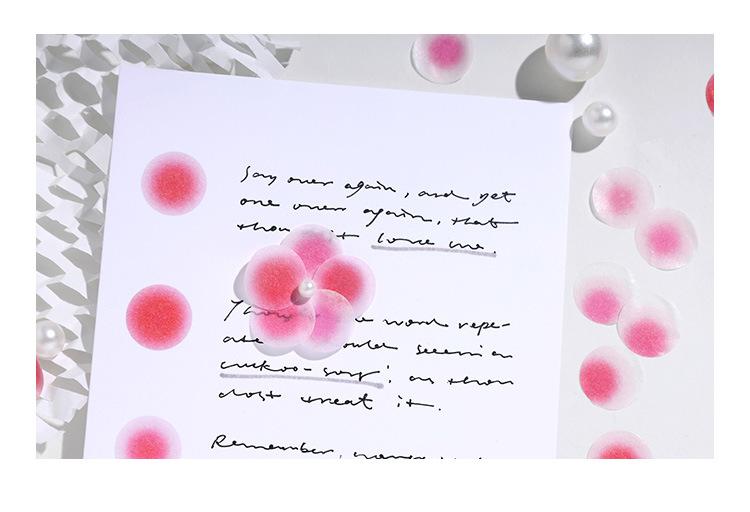 Say over again, and yet
one over again, that
thou it love me.
Though e word repe-
ated ould seem in
cuckoo-song', as thou
dost treat it.
Remember, never